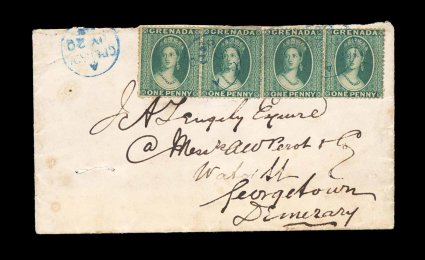 GRENADA GRENADA GRENADA GRENADA
ONE PENNY ONE PENNY ONE PENNY ONE PENNY
A
J A Tengely Esquire
@ Messrs A W Perot & Co
Water St
Georgetown
Demerary